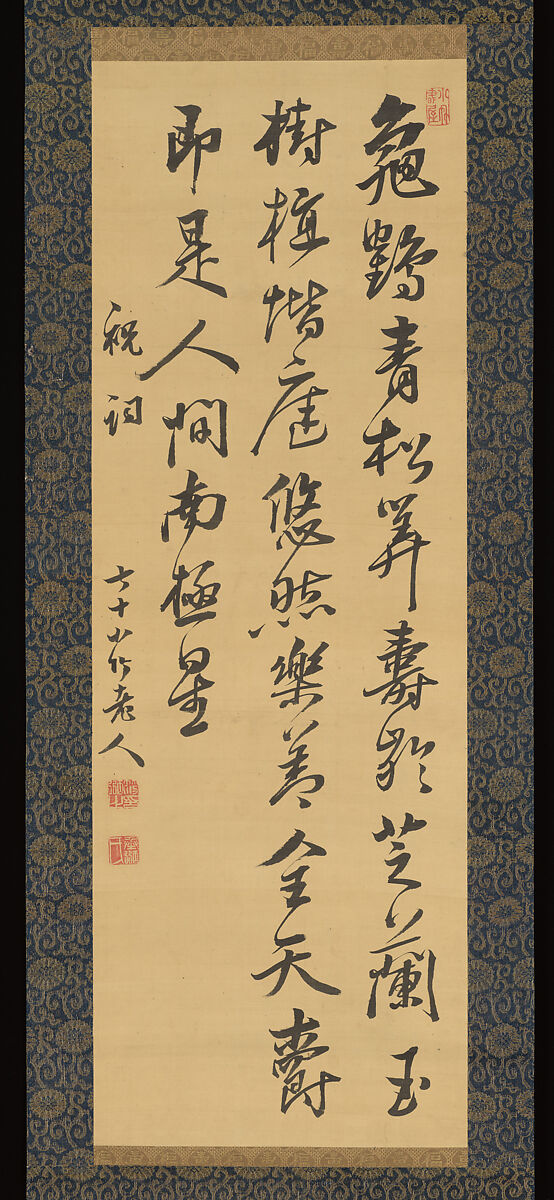 龜鶴青松算壽齡芝蘭玉
樹植堦庭悠然樂善全天爵
即是人間南極星
祝詞
六十少竹老人